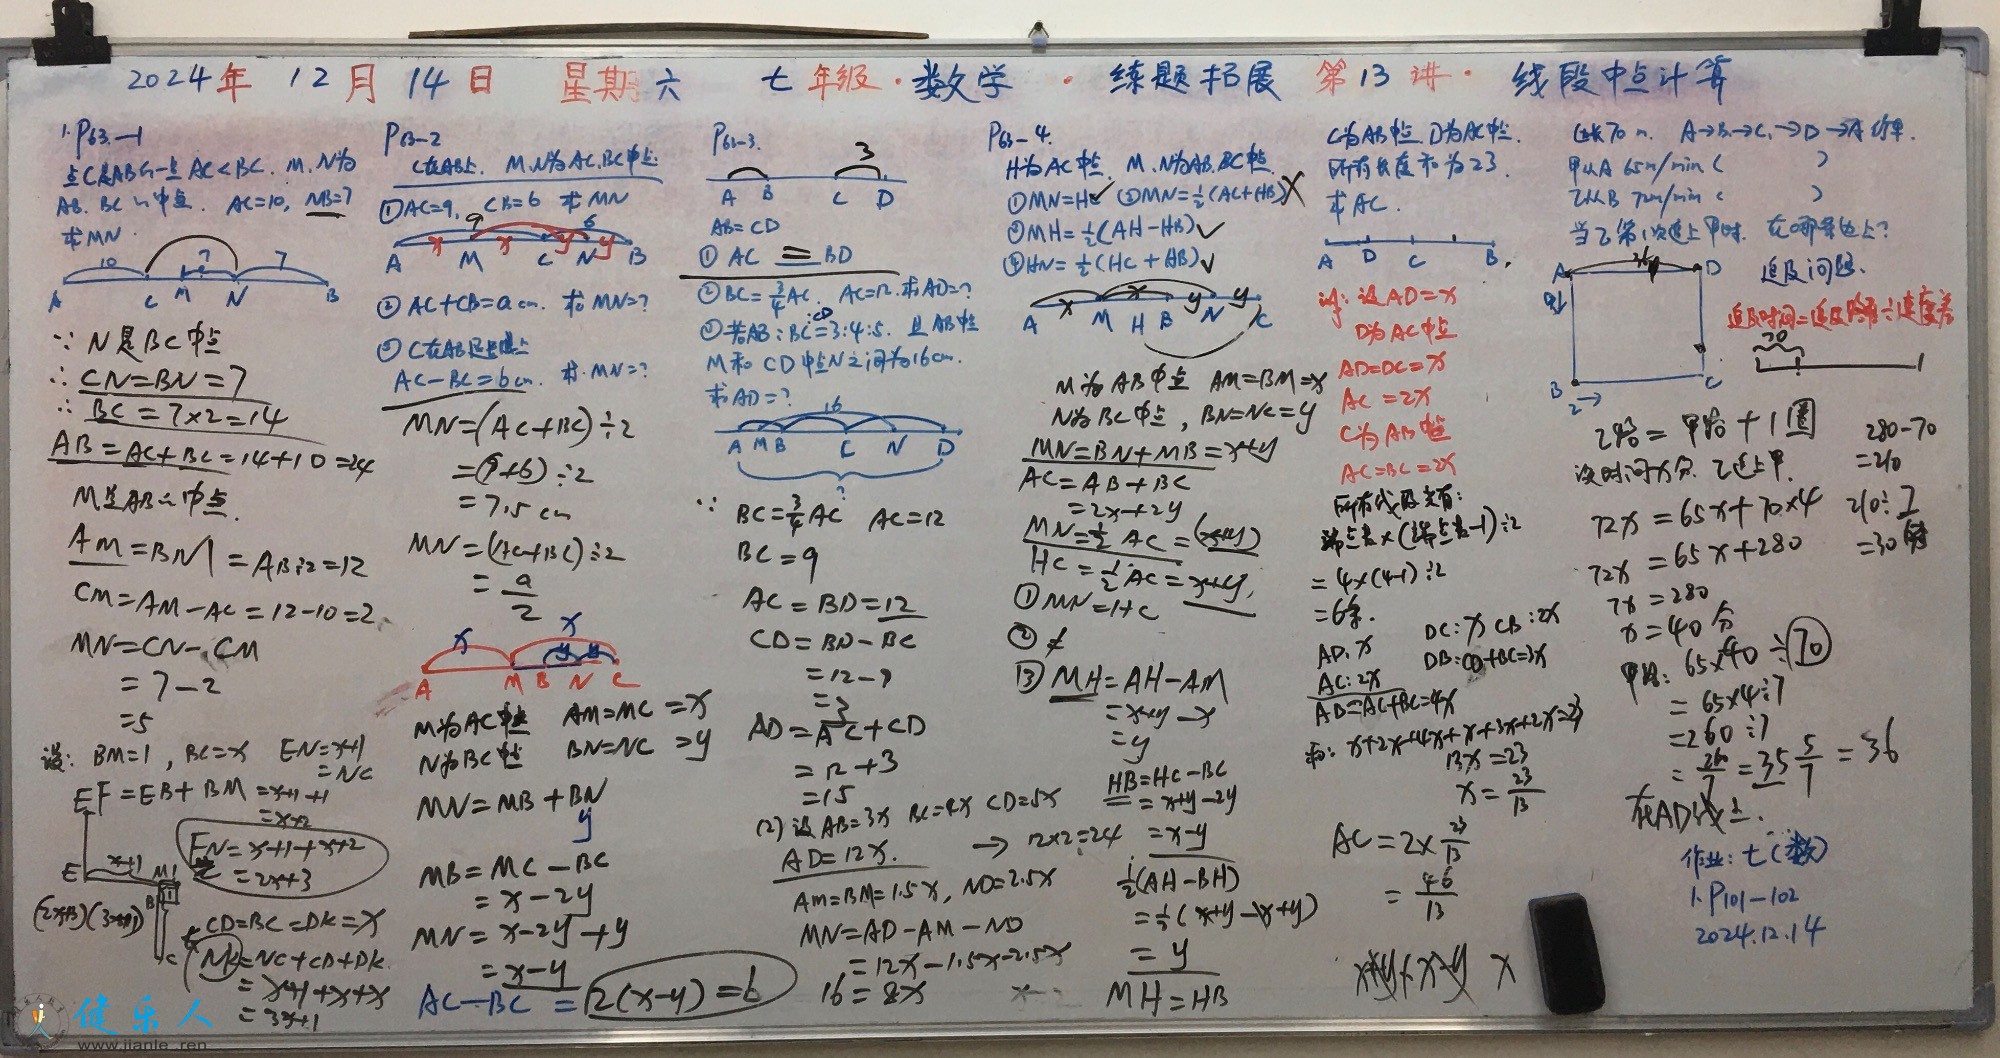 2024年 12月 14日 星期六 七年级·数学·练题拓展 第13讲·线段中点计算
1.P63-1
点C是AB上一点 AC<BC. M.N为
AB.BC的中点. AC=10, NB=7
求MN.
10 ? 7
A C M N B
∵ N是BC中点
∴ CN=BN=7
∴ BC=7×2=14
AB=AC+BC=14+10=24
M是AB的中点.
AM=BM=AB÷2=12
CM=AM-AC=12-10=2
MN=CN-CM
=7-2
=5
设: BM=1, BC=x EN=x+1
=NC
EF=EB+BM=x+1+1
=x+2
FN=x+1+x+2
=2x+3
E x+1 M 1
B
(2x+3)(3x+1)
C
CD=BC=DK=x
NK=NC+CD+DK
=x+1+x+x
=3x+1
健乐人
www.jianle.ren
P63-2
C在AB上. M.N为AC.BC中点.
①AC=9, CB=6 求MN
9 6
x x y y
A M C N B
②AC+CB=a cm. 求MN=?
③C在AB延长线上
AC-BC=6cm. 求MN=?
MN=(AC+BC)÷2
=(9+6)÷2
=7.5cm
MN=(AC+BC)÷2
=a/2
x x
y y
A M B N C
M为AC中点 AM=MC=x
N为BC中点 BN=NC=y
MN=MB+BN
y
MB=MC-BC
=x-2y
MN=x-2y+y
=x-y
AC-BC=2(x-y)=6
P63-3.
3
A B C D
AB=CD
①AC = BD
②BC=3/4AC. AC=12. 求AD=?
③若AB:BC:CD=3:4:5. 且AB中点
M和CD中点N之间为16cm.
求AD=?
16
A M B C N D
?
∵ BC=3/4AC AC=12
BC=9
AC=BD=12
CD=BD-BC
=12-9
=3
AD=AC+CD
=12+3
=15
(2)设AB=3x BC=4x CD=5x
AD=12x. → 12×2=24
AM=BM=1.5x, ND=2.5x
MN=AD-AM-ND
=12x-1.5x-2.5x
16=8x
P63-4.
H为AC中点. M.N为AB.BC中点.
①MN=HC✓ ②MN=1/2(AC+HB)✗
③MH=1/2(AH-HB)✓
④HN=1/2(HC+HB)✓
x x y y
A M H B N C
M为AB中点 AM=BM=x
N为BC中点, BN=NC=y
MN=BN+MB=x+y
AC=AB+BC
=2x+2y
MN=1/2AC=(x+y)
HC=1/2AC=x+y.
①MN=HC
②≠
③MH=AH-AM
=x+y-x
=y
HB=HC-BC
=x+y-2y
=x-y
1/2(AH-BH)
=1/2(x+y-x+y)
=y
MH=HB
C为AB中点. D为AC中点.
所有长度和为23.
求AC.
A D C B.
解: 设AD=x
D为AC中点
AD=DC=x
AC=2x
C为AB中点
AC=BC=2x
所有线段共有:
端点数×(端点数-1)÷2
=4×(4-1)÷2
=6条.
AD:x DC:x CB:2x
AC:2x DB:CD+BC=3x
AB=AC+BC=4x
和: x+2x+4x+x+3x+2x=23
13x=23
x=23/13
AC=2×23/13
=46/13
x+y+x-y x
边长70m. A→B→C→D→A行军.
甲从A 65m/min ( )
乙从B 72m/min ( )
当乙第1次追上甲时. 在哪条边上?
A D
追及问题.
追及时间=追及路程÷速度差
70
1
B C
2→
乙路=甲路+1圈
设时间x分 乙追上甲.
72x=65x+70×4
72x=65x+280
7x=280
x=40分
280-70
=210
210÷7
=30
甲路: 65×40÷70
=65×4÷7
=260÷7
=260/7=35 5/7=36
在AD线上.
作业: 七(数)
1.P101-102
2024.12.14